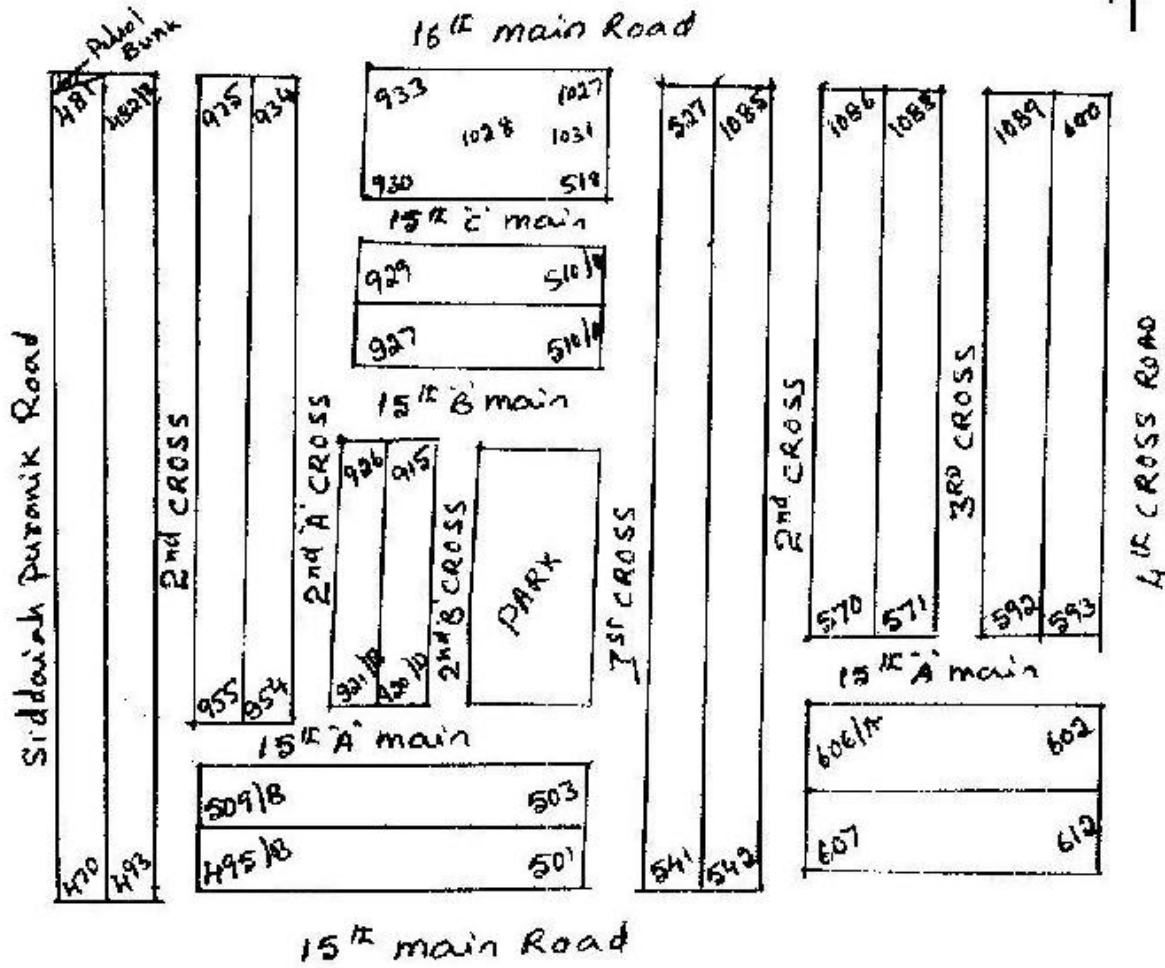 16th main Road
Petrol Bunk
481 482/B 975 934 933 1027 527 1085 1086 1088 1089 600
1028 1031
930 518
15th "C" main
929 510/B
927 510/A
15th "B" main
Siddaiah puranik Road
2nd CROSS
2nd "A" CROSS
926 915
2nd B CROSS
PARK
1ST CROSS
2nd CROSS
3RD CROSS
4th CROSS ROAD
921/B 920/D
570 571 592 593
955 954
15th "A" main
15th "A" main
509/B 503
606/A 602
495/B 501
607 612
470 493
541 542
15th main Road